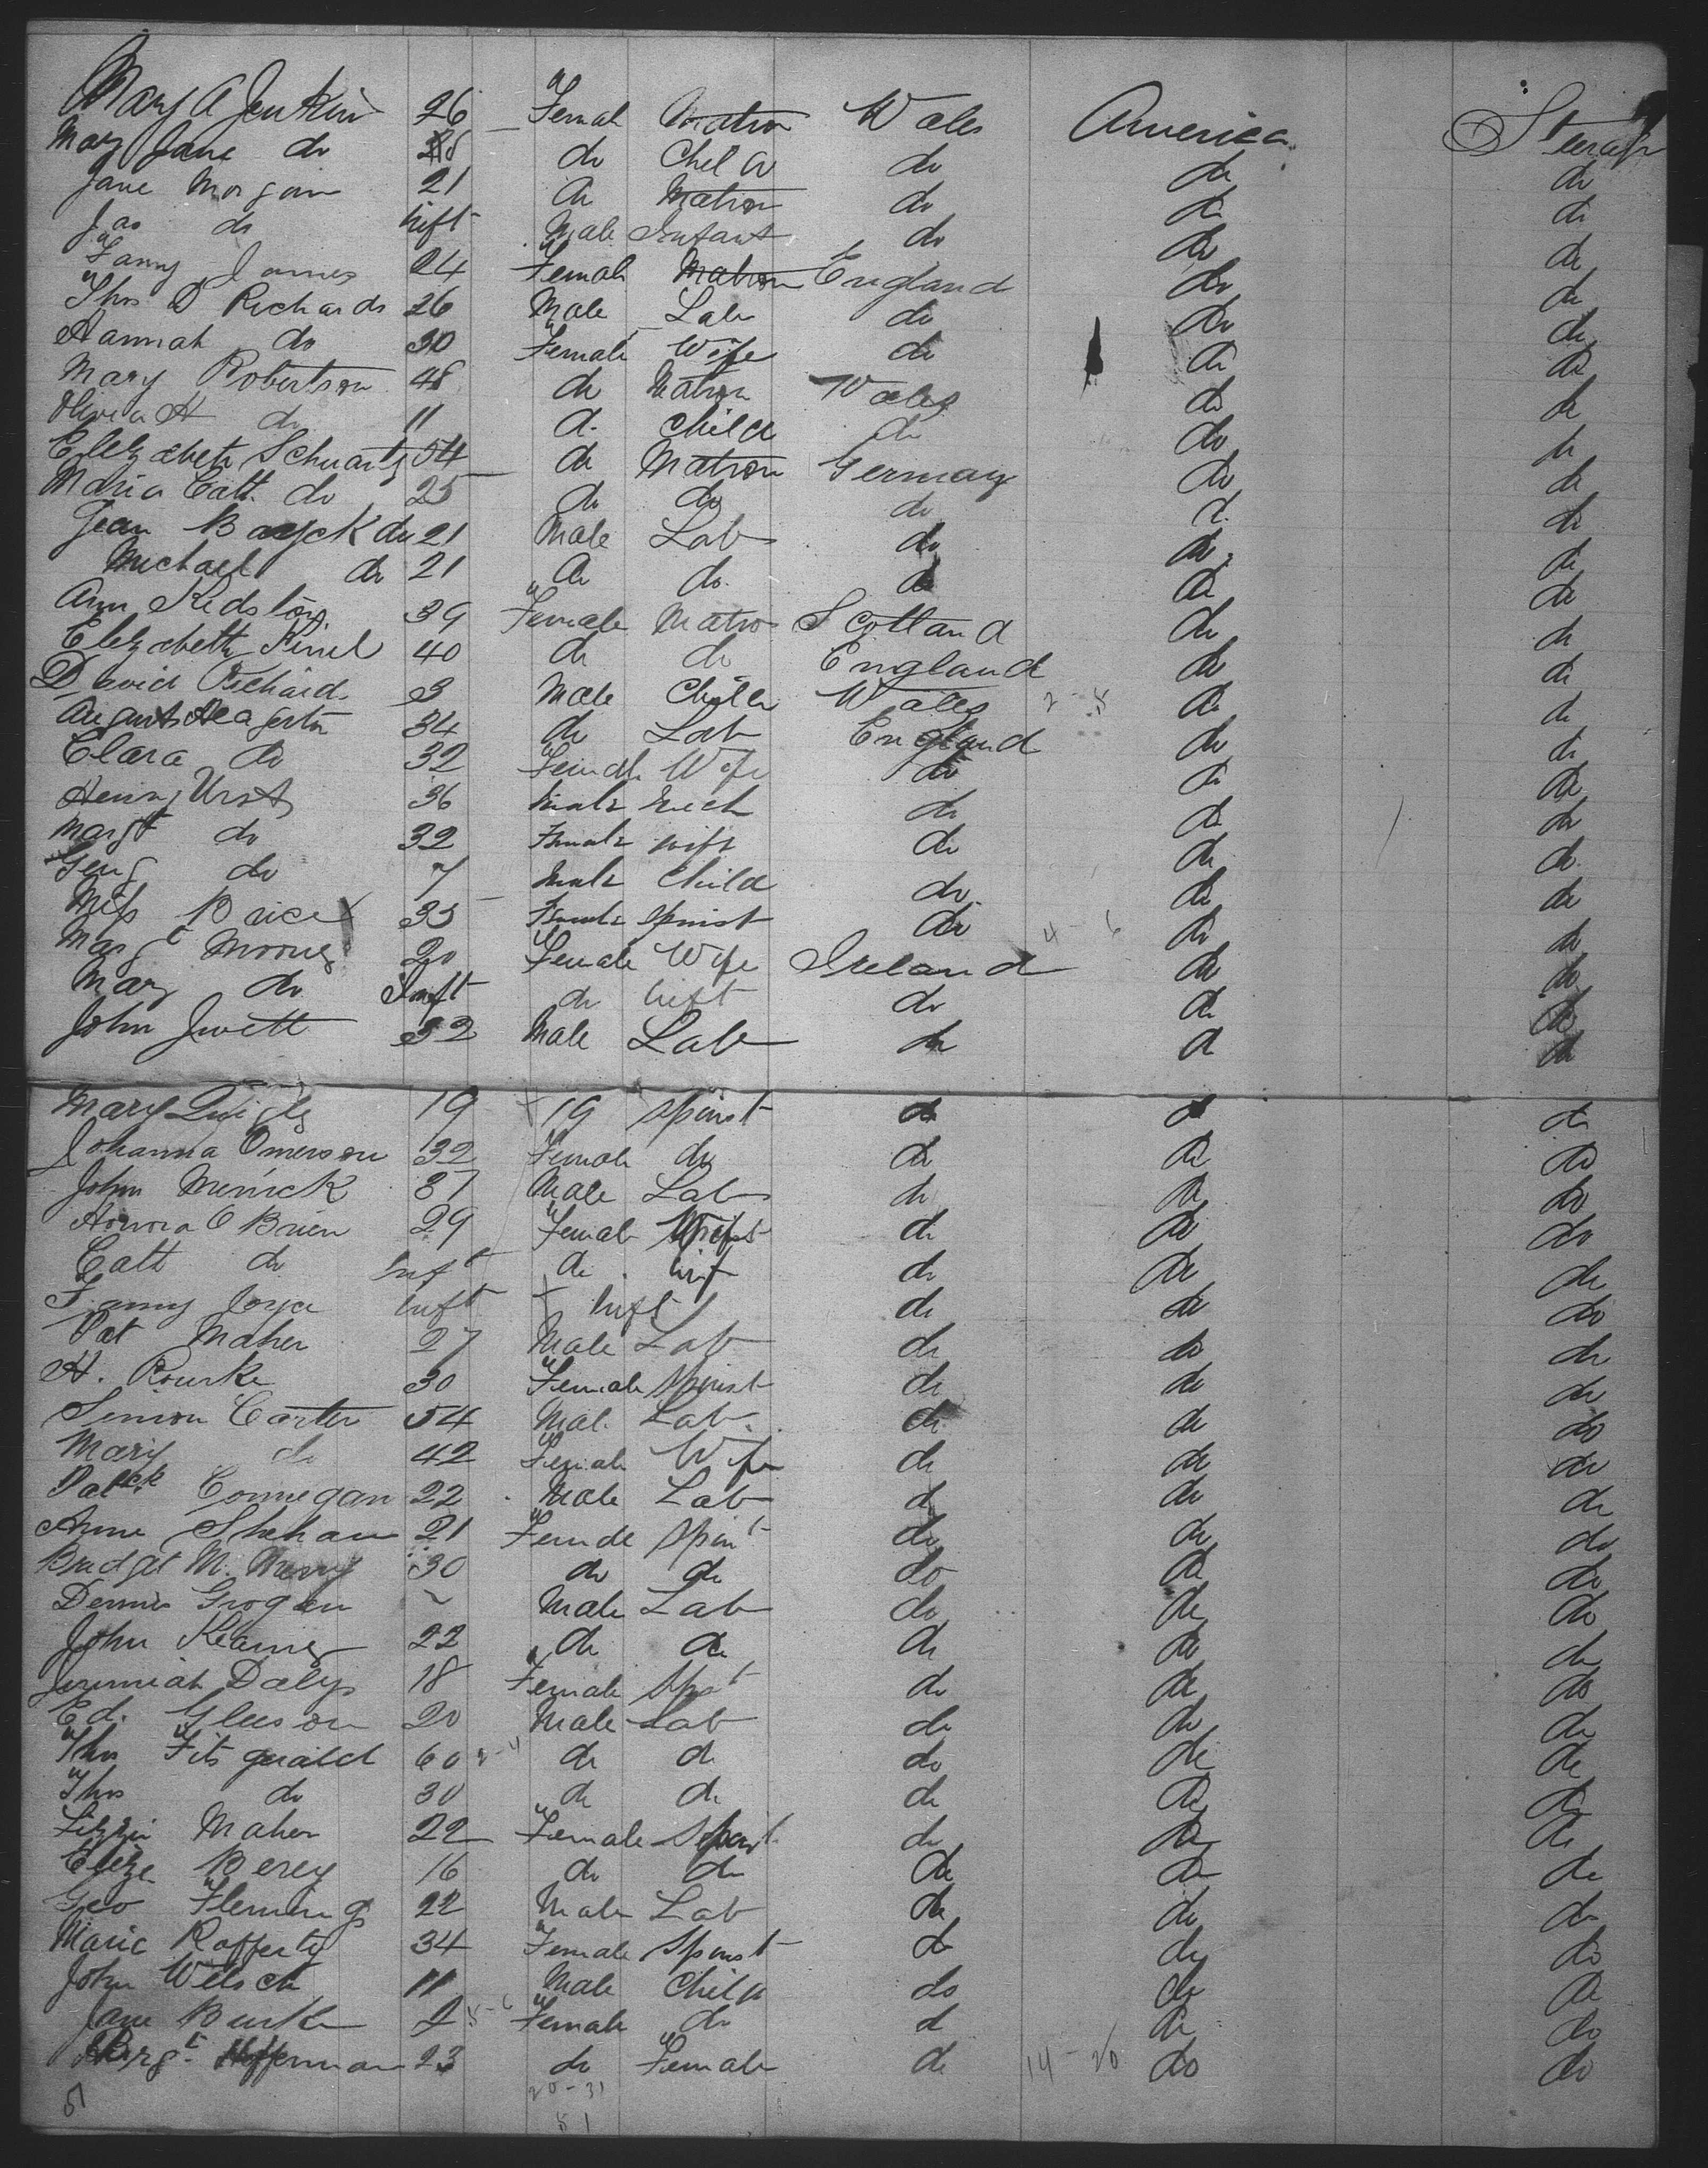 Mary A Jenkin 26 Female Matron Wales America Steerage
Mary Jane do do Child do do do
Jane Morgan 21 do Matron do do do
Jas do Inft Male Infant do do do
Fanny James 24 Female Matron England do do
Thos D Richards 26 Male Lab do do do
Hannah do 30 Female Wife do do do
Mary Robertson 48 do Matron Wales do do
Olivia H do 11 do Child do do do
Elizabeth Schwartz 54 do Matron Germany do do
Maria Cath. do 25 do do do do do
Jean do 21 Male Lab do do do
Michael do 21 do do do do do
Ann 39 Female Matro Scotland do do
Elizabeth 40 do do England do do
David Richard 3 Male Child Wales 2 - 5 do do
August 34 do Lab England do do
Clara do 32 Female Wife do do do
Henry 36 Male Mech do do do
Margt do 32 Female Wife do do do
Geng do 7 Male Child do do do
Miss Brice 33 Female Spinst do 4 - 6 do do
Margt Mooney 20 Female Wife Ireland do do
Mary do Inft do Inft do do do
John Jwett 32 Male Lab do do do
Mary Quigly 19 19 Spinst do do do
Johanna Omerson 32 Female do do do do
John Merrick 37 Male Lab do do do
Honora O Brien 29 Female do do do
Cath do Inft do Inft do do do
Fanny Inft Inft do do do
Pat Maher 27 Male Lab do do do
H. Rourke 30 Female Spinst do do do
Simon Carter 54 Mal. Lab. do do do
Mary do 42 Female Wife do do do
Patck Connegan 22 Male Lab do do do
Anne Shehan 21 Female Spint do do do
Bridget M. 30 do do do do do
Dennis Grogan ~ Male Lab do do do
John Kearney 22 do do do do do
Jeremiah Daly 18 Female Spst do do do
Ed. Gleeson 20 Male Lab do do do
Thos Fitsgerald 60 2-4 do do do do do
Thos do 30 do do do do do
Lizzie Maher 22 Female Spinst do do do
Eliza Berey 16 do do do do do
Geo Fleming 22 Male Lab do do do
Marie Rafferty 34 Female Spinst do do do
John Welsch 11 Male Child do do do
Jane Burke 2 5-6 Female do do do do
Margt. Heffernan 23 do Female do 14 - 20 do do
51 20-31
51